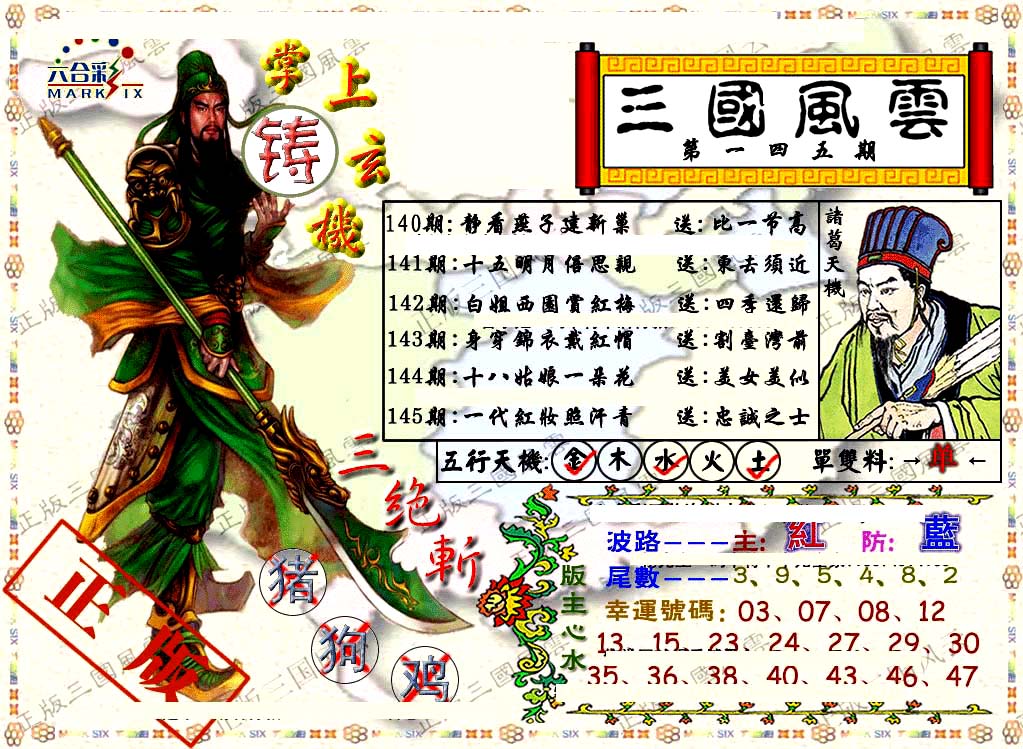 六合彩
MARK SIX
掌上玄機
铸
三國風雲
第一四五期
140期:静看燕子建新巢 送:比一节高
141期:十五明月倍思親 送:東去須近
142期:白姐西園賞紅梅 送:四季還歸
143期:身穿錦衣戴紅帽 送:割臺灣前
144期:十八姑娘一朵花 送:美女美似
145期:一代紅妝照汗青 送:忠誠之士
諸葛天機
五行天機:金木水火土 單雙料:→单←
三絶斬
猪
狗
鸡
正版
版主心水
波路---主:紅 防:藍
尾數---3、9、5、4、8、2
幸運號碼:03、07、08、12
13、15、23、24、27、29、30
35、36、38、40、43、46、47